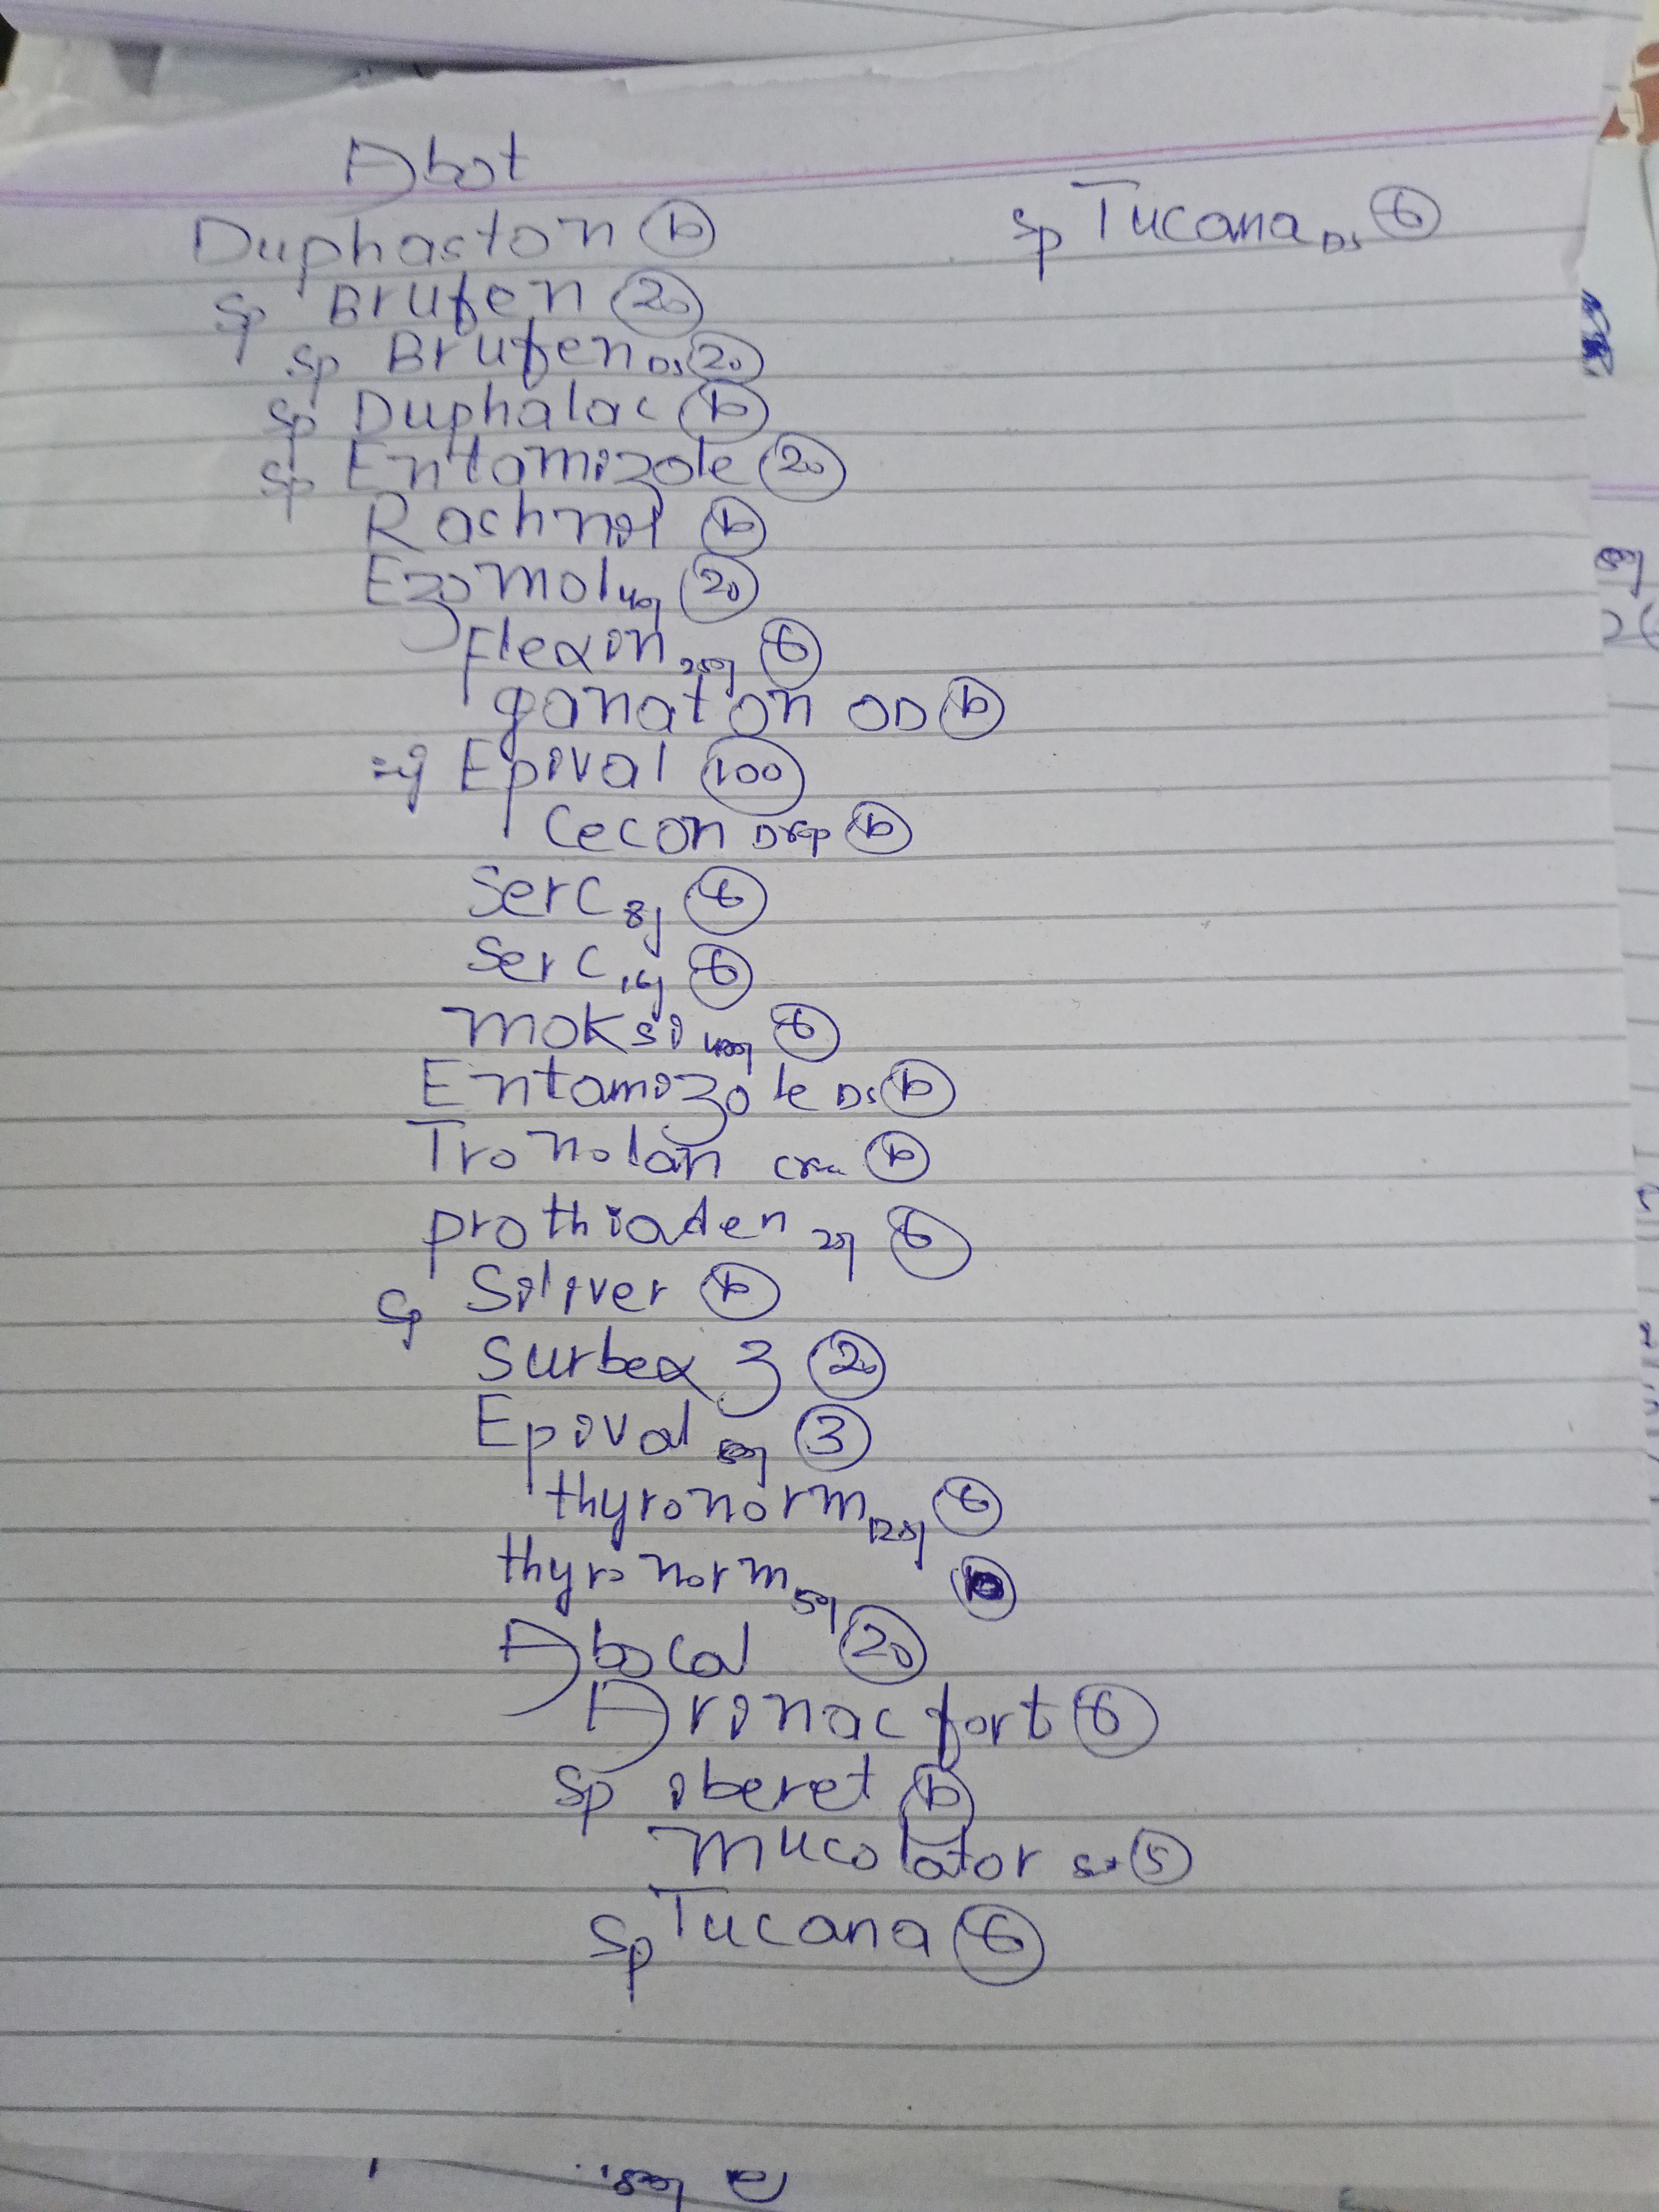 Abot
Duphaston 10
sp Brufen 20
sp Brufen DS 20
sp Duphalac 10
sp Entamizole 20
Rashnol 10
Ezomol 40g 20
Flexin 250g 6
ganaton OD 10
Epival 100
Cecon Drop 10
Serc 8g 6
Serc 16g 6
Moksi 400g 6
Entamizole DS 10
Tronolan 10
prothiaden 25g 6
sp Siliver 10
Surbex Z 20
Epival 500g 3
thyronorm 6
thyronorm 50g
Abocal 20
Arinac fort 6
sp iberet 10
Mucolator 5
sp Tucana 6
sp Tucana DS 6